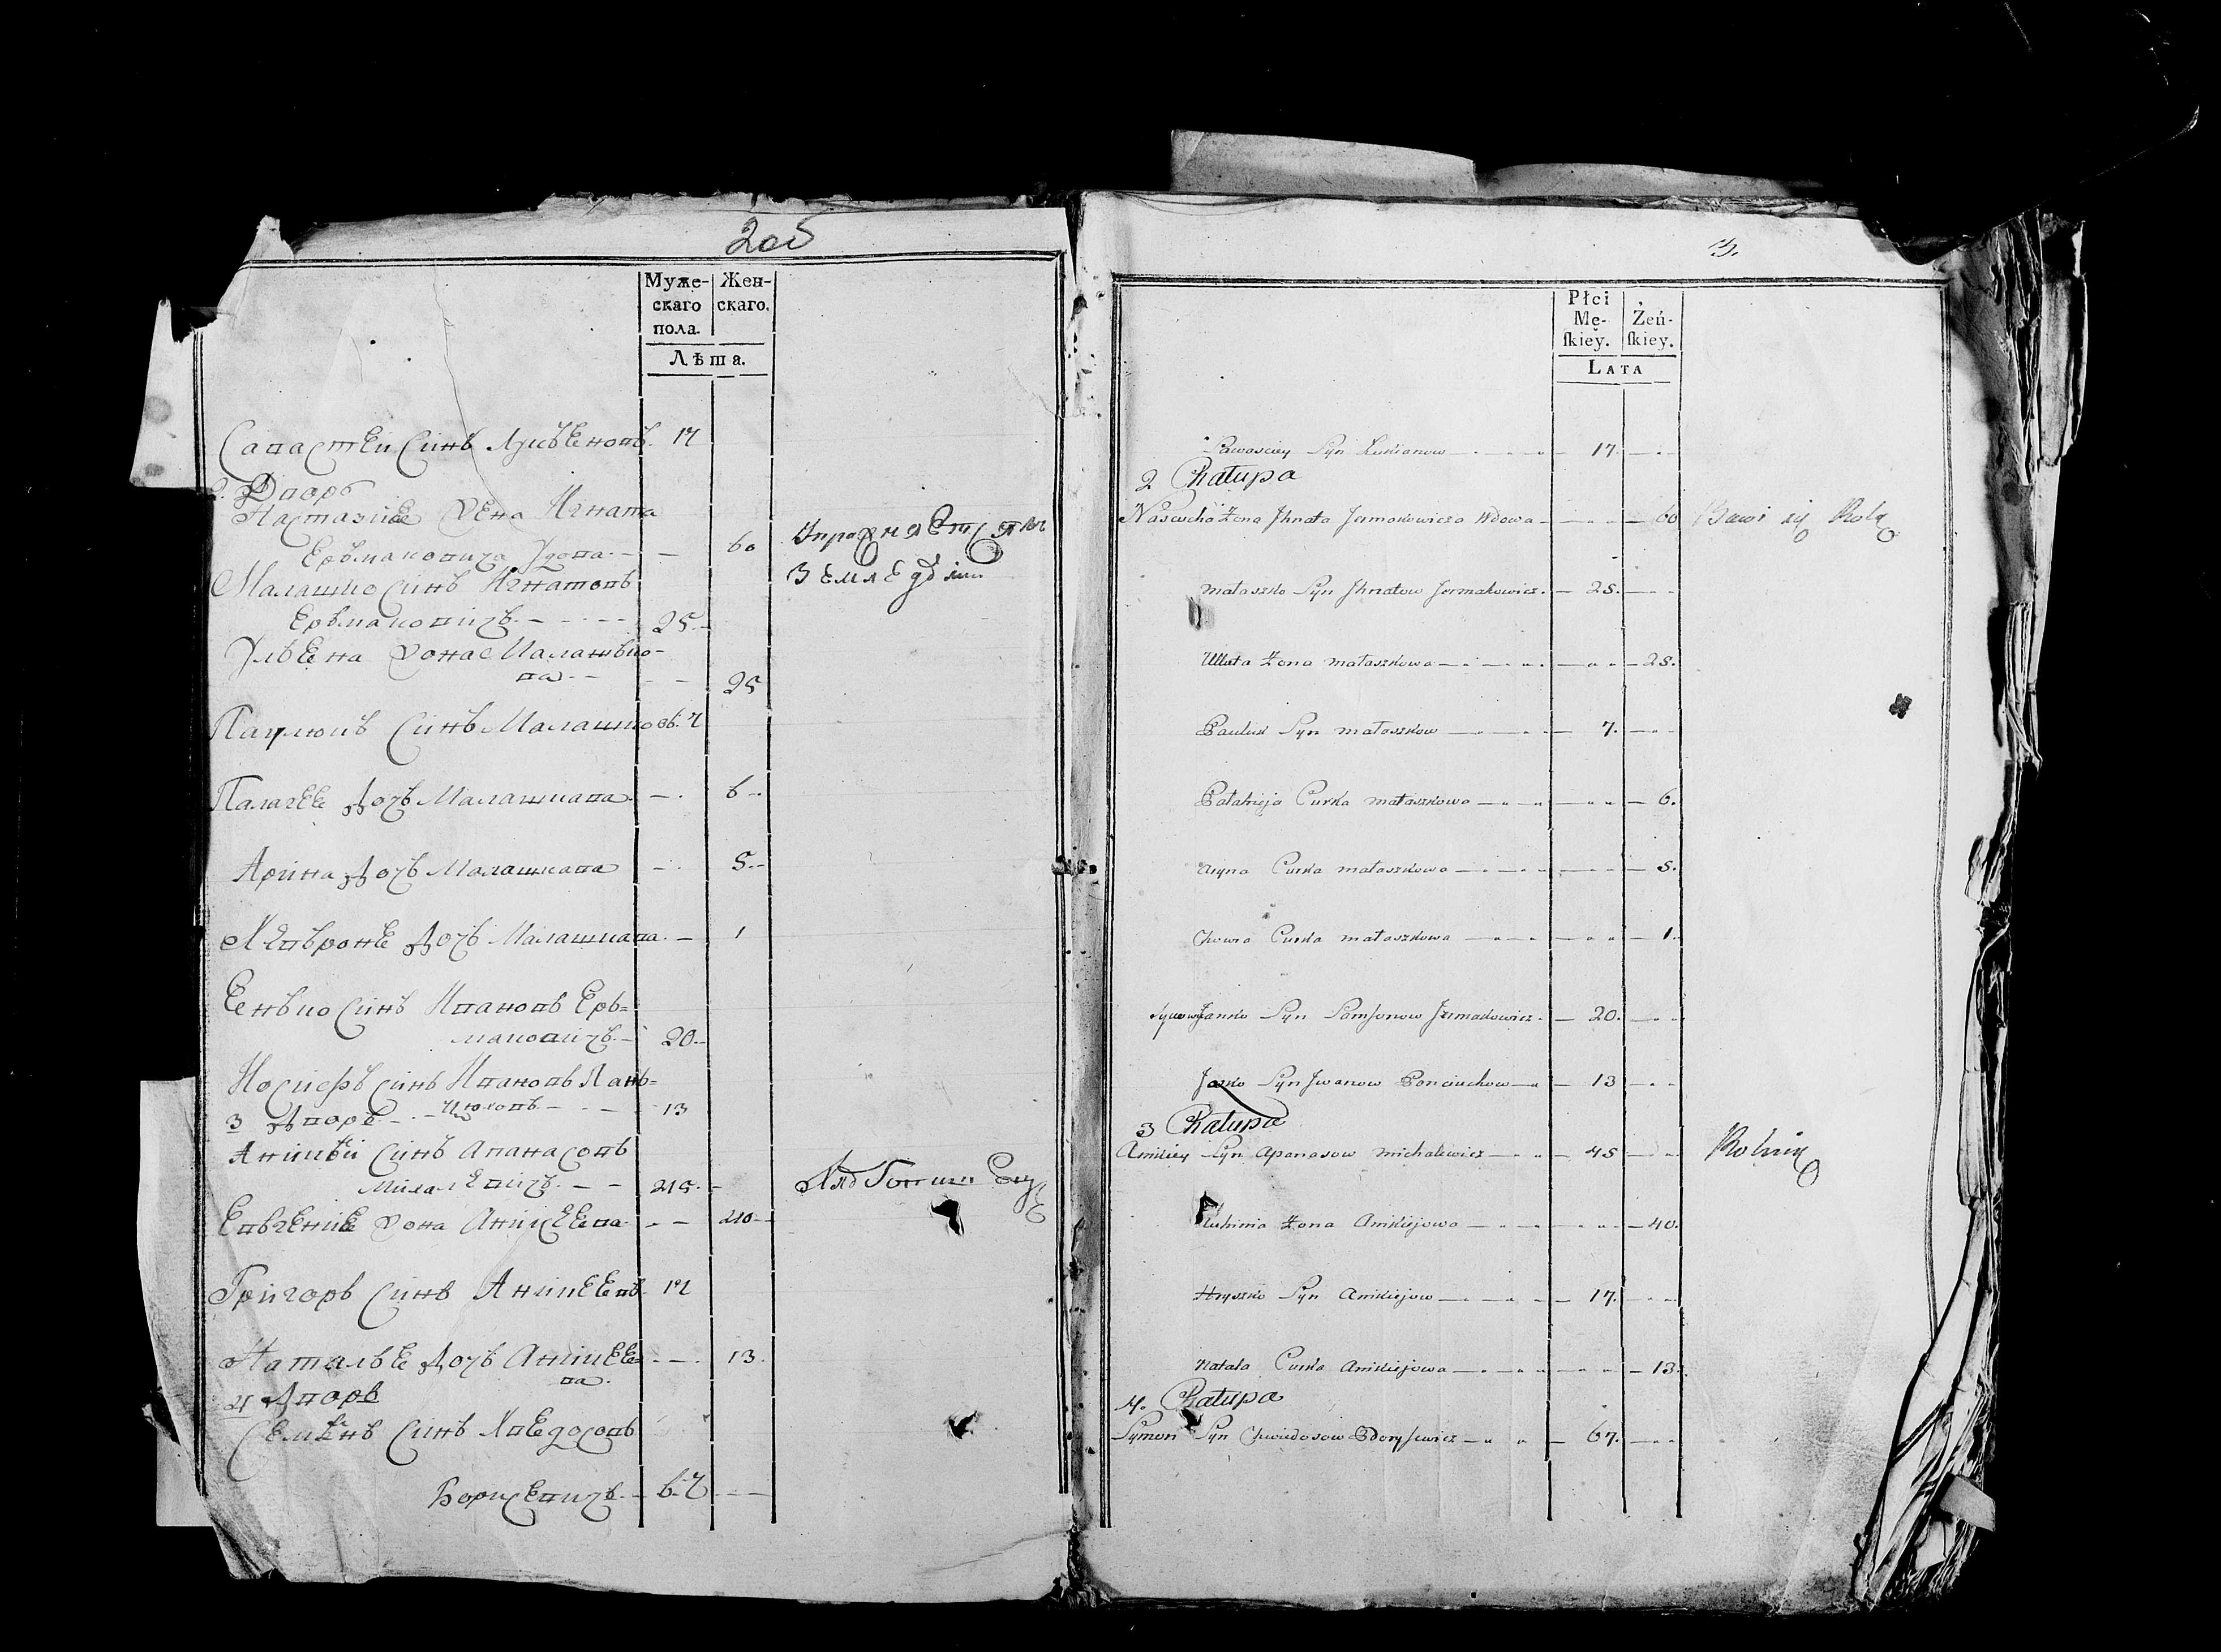 2об
Муже-
скаго
пола.
Жен-
скаго.
Лѣта.
Савастеи Синъ Лукьеновъ. 17
2. Дворъ
Настазие Жена Игната
Ерьмаковича Удова - - 60 Упражняетца въ
Земледѣлии
Малашко Синъ Игнатовъ
Ерьмаковичъ - - - 25 -
Ульена Жона Малашько-
ва - - - 25
Паулюкъ Синъ Малашковъ. 7
Палагее Дочъ Малашкава - . 6 -
Арина Дочъ Малашкава - . 5 -
Хевьроне Дочъ Малашкава. - 1
Еенько Синъ Ивановъ Ерь=
маковичъ. - 20 -
Иосифъ Синъ Ивановъ Пань=
цюховъ - - 13
3 Дворъ
Аникѣи Синъ Апанасовъ
Михалевичъ. - - 45. -
Евьгение Жона Аникеева - - 40 -
Григоръ Синъ Аникеевъ. 17
Наталье Дочъ Аникее= - - . 13.
ва.
4 Дворъ
Семѣнъ Синъ Хведосовъ
Борисевичъ. - 67 - -
3.
Płci
Mę-
skiey.
Żeń-
skiey.
LATA
Sawasciey Syn Łukianow - 17. -
2 Chałupa
Nascucha Żona Jhnata Jermakowicza Wdowa - - 60 Bawi się Rolą
Małaszko Syn Jhnatow Jermakowicz. - 25. -
Ullata Żona Małaszkowa - - 25.
Pauluk Syn Małaszkow - 7. -
Pałahieja Curka Małaszkowa - - 6.
Aryna Curka Małaszkowa - - 5.
Chowra Curka Małaszkowa - - 1.
Janko Syn Samsonow Jermakowicz. - 20. -
Jozko Syn Jwanow Ponciuchow - 13 -
3 Chałupa
Anikiey Syn Apanasow Michalewicz - 45 - Rolnik
Żona Anikiejowa - - 40.
Hryszko Syn Anikiejow - 17. -
Natala Curka Anikiejowa - - 13.
4. Chałupa
Symon Syn Chwiedosow Borysewicz - 67. -